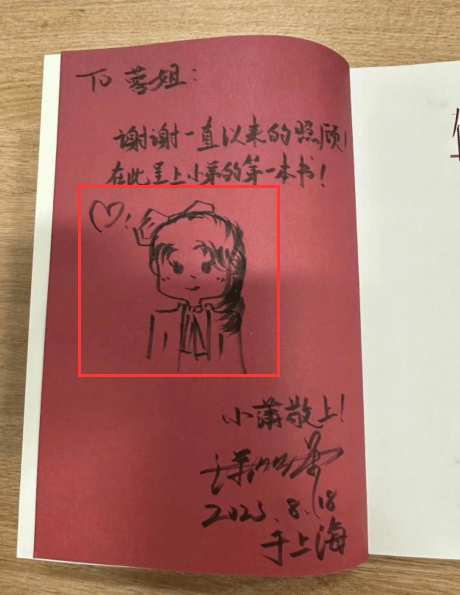 To 蓉姐：
谢谢一直以来的照顾！
在此呈上小弟的第一本书！
小蒲敬上！
2023.8.18
于上海